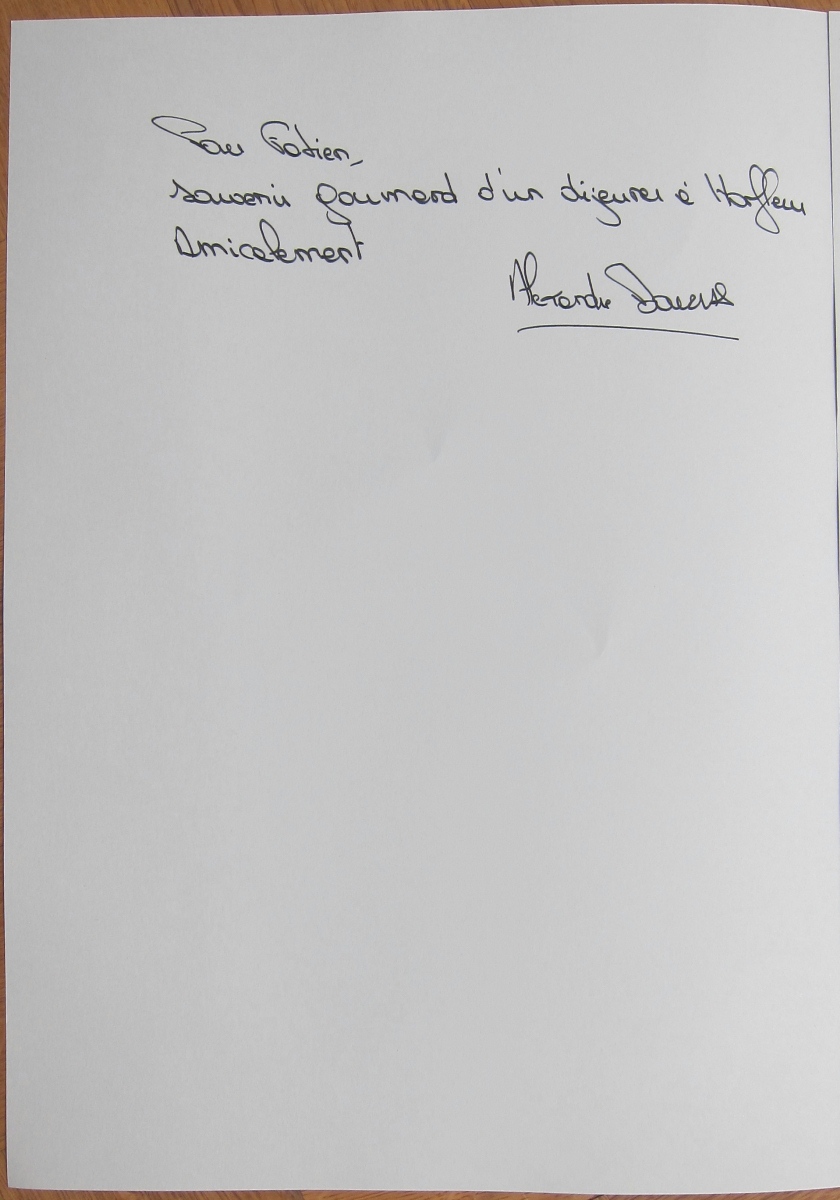 Pour Fabien,
souvenir gourmand d'un déjeuner à Harfleur
Amicalement
Alexandre